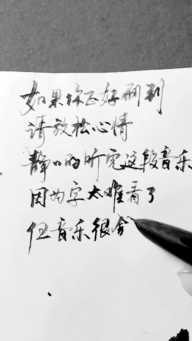 如果你正好刷到
请放松心情
静静的听完这段音乐
因为字太难看了
但音乐很